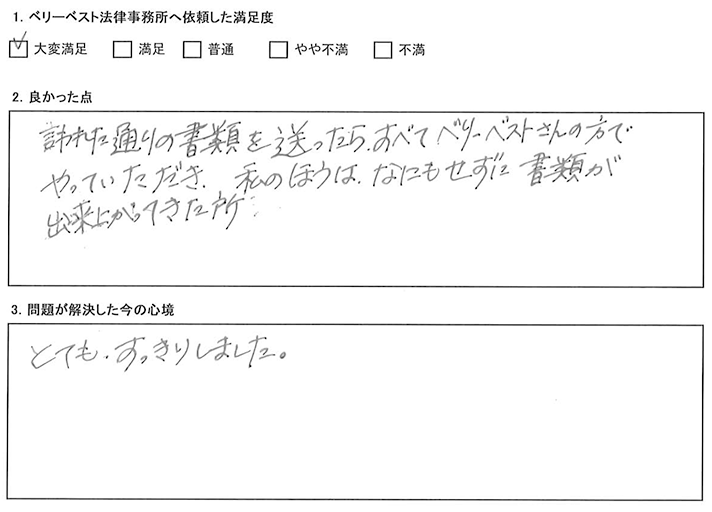 1. ベリーベスト法律事務所へ依頼した満足度
☑ 大変満足 □ 満足 □ 普通 □ やや不満 □ 不満
2. 良かった点
言われた通りの書類を送ったら、すべてベリーベストさんの方で
やっていただき、私のほうは、なにもせずに書類が
出来上がってきた所
3. 問題が解決した今の心境
とても、すっきりしました。